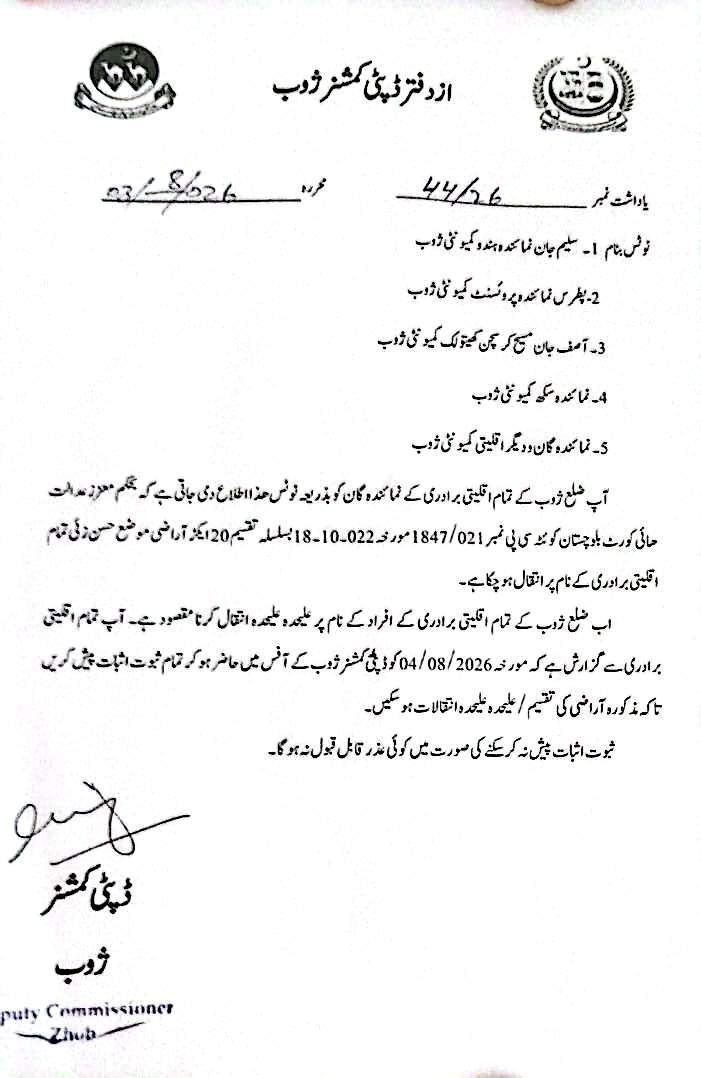 از دفتر ڈپٹی کمشنر ژوب
یاداشت نمبر 44/26 محررہ 03/8/026
نوٹس بنام 1۔ سلیم جان نمائندہ ہندو کمیونٹی ژوب
2۔ پطرس نمائندہ پروٹسنٹ کمیونٹی ژوب
3۔ آصف جان مسیح کرسچن کھیتولک کمیونٹی ژوب
4۔ نمائندہ سکھ کمیونٹی ژوب
5۔ نمائندہ گان و دیگر اقلیتی کمیونٹی ژوب
آپ ضلع ژوب کے تمام اقلیتی برادری کے نمائندہ گان کو بذریعہ نوٹس ھذا اطلاع دی جاتی ہے کہ بحکم معزز عدالت
ھائی کورٹ بلوچستان کوئٹہ سی پی نمبر 1847/021 مورخہ 022-10-18 بسلسلہ تقسیم 20 ایکڑ آراضی موضع حسن زئی تمام
اقلیتی برادری کے نام پر انتقال ہو چکا ہے۔
اب ضلع ژوب کے تمام اقلیتی برادری کے افراد کے نام پر علیحدہ علیحدہ انتقال کرنا مقصود ہے۔ آپ تمام اقلیتی
برادری سے گزارش ہے کہ مورخہ 04/08/2026 کو ڈپٹی کمشنر ژوب کے آفس میں حاضر ہو کر تمام ثبوت اثبات پیش کریں
تاکہ مذکورہ آراضی کی تقسیم / علیحدہ علیحدہ انتقالات ہو سکیں۔
ثبوت اثبات پیش نہ کر سکنے کی صورت میں کوئی عذر قابل قبول نہ ہو گا۔
ڈپٹی کمشنر
ژوب
puty Commissioner
Zhob